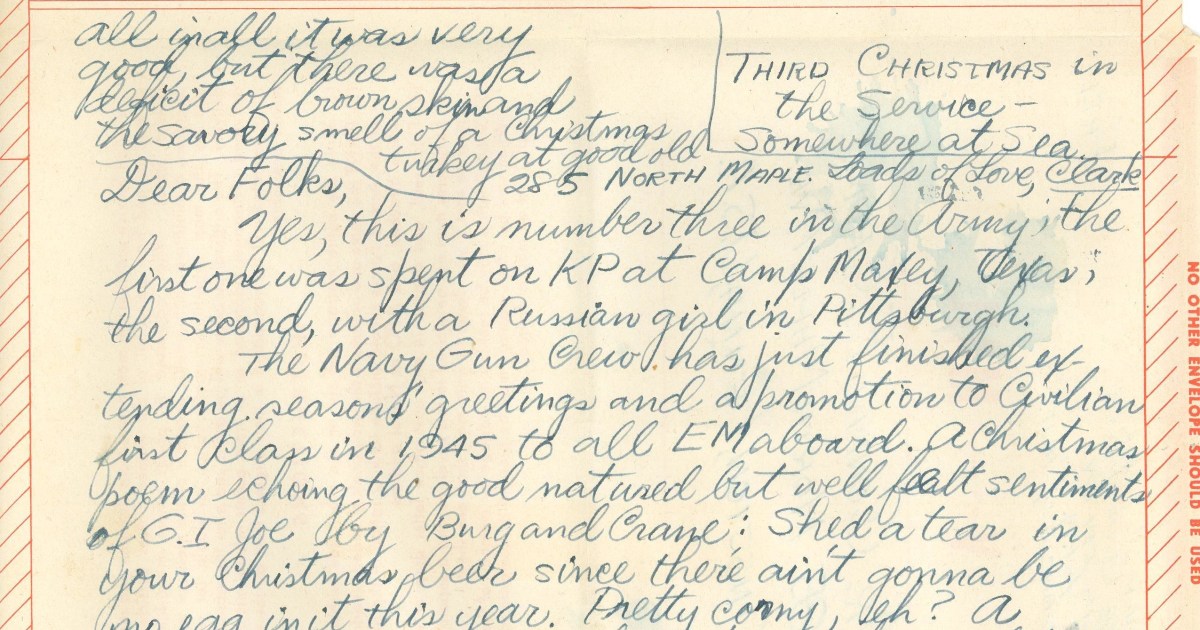 all in all it was very
good, but there was a
deficit of brown skin and
the savory smell of a Christmas
turkey at good old
285 NORTH MAPLE. Loads of Love, Clark
THIRD CHRISTMAS in
the Service -
Somewhere at Sea.
Dear Folks,
Yes, this is number three in the Army; the
first one was spent on KP at Camp Maxey, Texas;
the second, with a Russian girl in Pittsburgh.
The Navy Gun Crew has just finished ex-
tending seasons' greetings and a promotion to Civilian
first class in 1945 to all EM aboard. A Christmas
poem echoing the good natured but well fealt sentiments
of G.I Joe by Burg and Crane: Shed a tear in
your Christmas beer since there ain't gonna be
no egg in it this year. Pretty corny, eh? A
NO OTHER ENVELOPE SHOULD BE USED